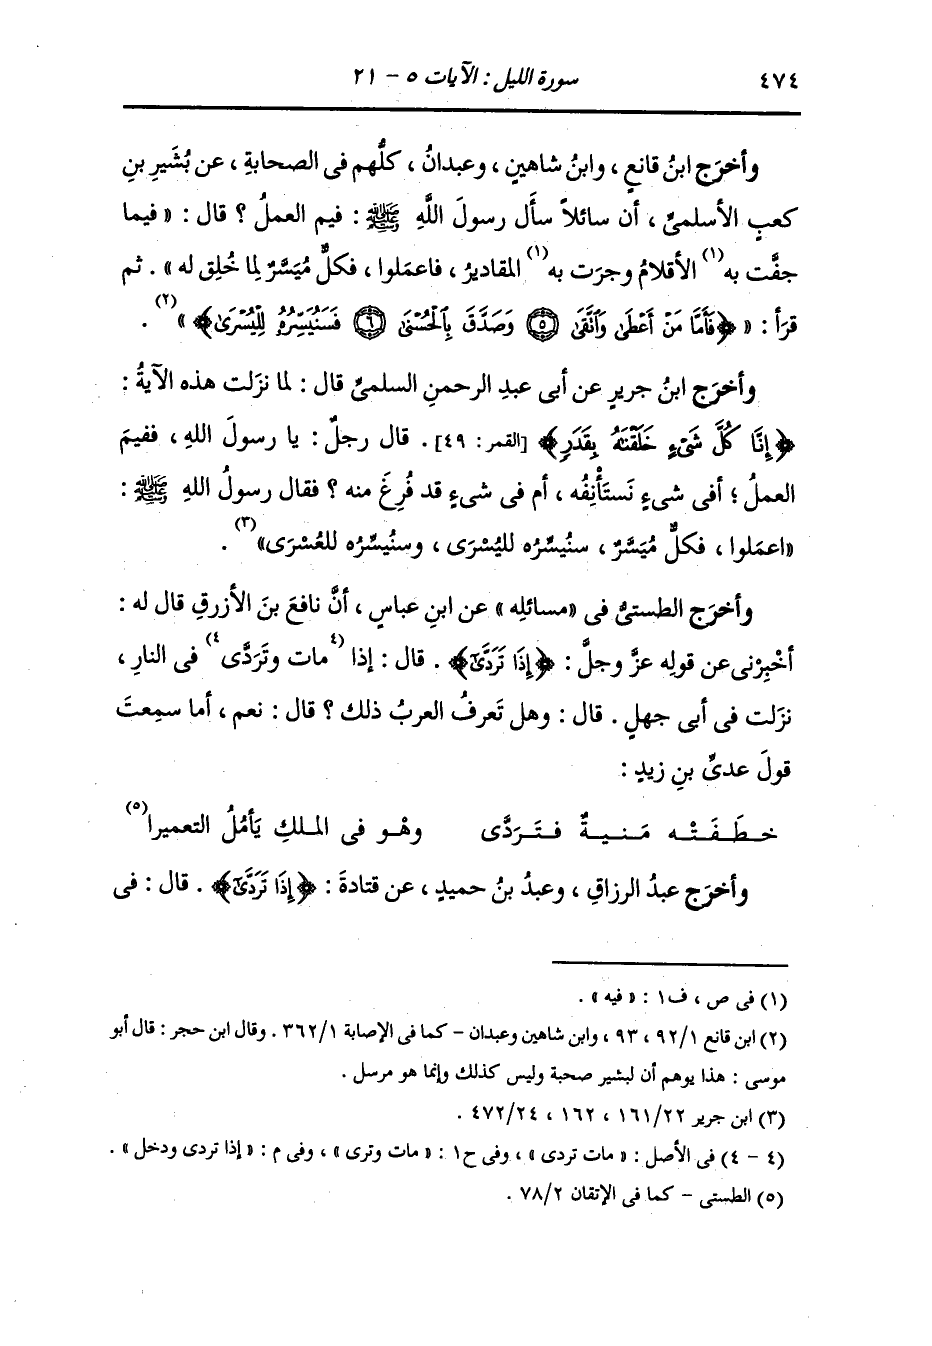 ٤٧٤
سورة الليل : الآيات ٥ - ٢١
وأخرَج ابنُ قانعٍ ، وابنُ شاهينٍ ، وعبدانُ ، كلُّهم فى الصحابةِ ، عن بُشَيرِ بنِ
كعبٍ الأسلمىِّ ، أن سائلاً سأَل رسولَ اللَّهِ ﷺ : فيم العملُ ؟ قال : « فيما
جفَّت به(١) الأقلامُ وجرَت به(١) المقاديرُ ، فاعمَلوا ، فكلٌّ مُيَسَّرٌ لِما خُلِق له » . ثم
قرَأ : « ﴿فَأَمَّا مَنْ أَعْطَىٰ وَٱتَّقَىٰ ۝٥ وَصَدَّقَ بِٱلْحُسْنَىٰ ۝٦ فَسَنُيَسِّرُهُۥ لِلْيُسْرَىٰ﴾ »(٢) .
وأخرَج ابنُ جريرٍ عن أبى عبدِ الرحمنِ السلمىِّ قال : لما نزَلت هذه الآيةُ :
﴿إِنَّا كُلَّ شَىْءٍ خَلَقْنَٰهُ بِقَدَرٍ﴾ [القمر: ٤٩] . قال رجلٌ : يا رسولَ اللهِ ، ففيمَ
العملُ ؛ أفى شىءٍ نَستَأْنِفُه ، أم فى شىءٍ قد فُرِغَ منه ؟ فقال رسولُ اللهِ ﷺ :
«اعمَلوا ، فكلٌّ مُيَسَّرٌ ، سنُيسِّرُه لليُسْرَى ، وسنُيسِّرُه للعُسْرَى»(٣) .
وأخرَج الطستىُّ فى «مسائلِه» عن ابنِ عباسٍ ، أنَّ نافعَ بنَ الأزرقِ قال له :
أخْبِرْنى عن قولِه عزَّ وجلَّ : ﴿إِذَا تَرَدَّىٰٓ﴾ . قال : إذا (٤مات وتَرَدَّى٤) فى النارِ ،
نزَلت فى أبى جهلٍ . قال : وهل تَعرفُ العربُ ذلك ؟ قال : نعم ، أما سمِعتَ
قولَ عدىِّ بنِ زيدٍ :
خطَفَتْه مَنيةٌ فتَرَدَّى وهْو فى الملكِ يَأمُلُ التعميرا(٥)
وأخرَج عبدُ الرزاقِ ، وعبدُ بنُ حميدٍ ، عن قتادةَ : ﴿إِذَا تَرَدَّىٰٓ﴾ . قال : فى
(١) فى ص ، ف١ : « فيه » .
(٢) ابن قانع ٩٢/١ ، ٩٣ ، وابن شاهين وعبدان - كما فى الإصابة ٣٦٢/١ . وقال ابن حجر : قال أبو
موسى : هذا يوهم أن لبشير صحبة وليس كذلك وإنما هو مرسل .
(٣) ابن جرير ١٦١/٢٢ ، ١٦٢ ، ٤٧٢/٢٤ .
(٤ - ٤) فى الأصل : « مات تردى » ، وفى ح١ : « مات وترى » ، وفى م : « إذا تردى ودخل » .
(٥) الطستى - كما فى الإتقان ٧٨/٢ .